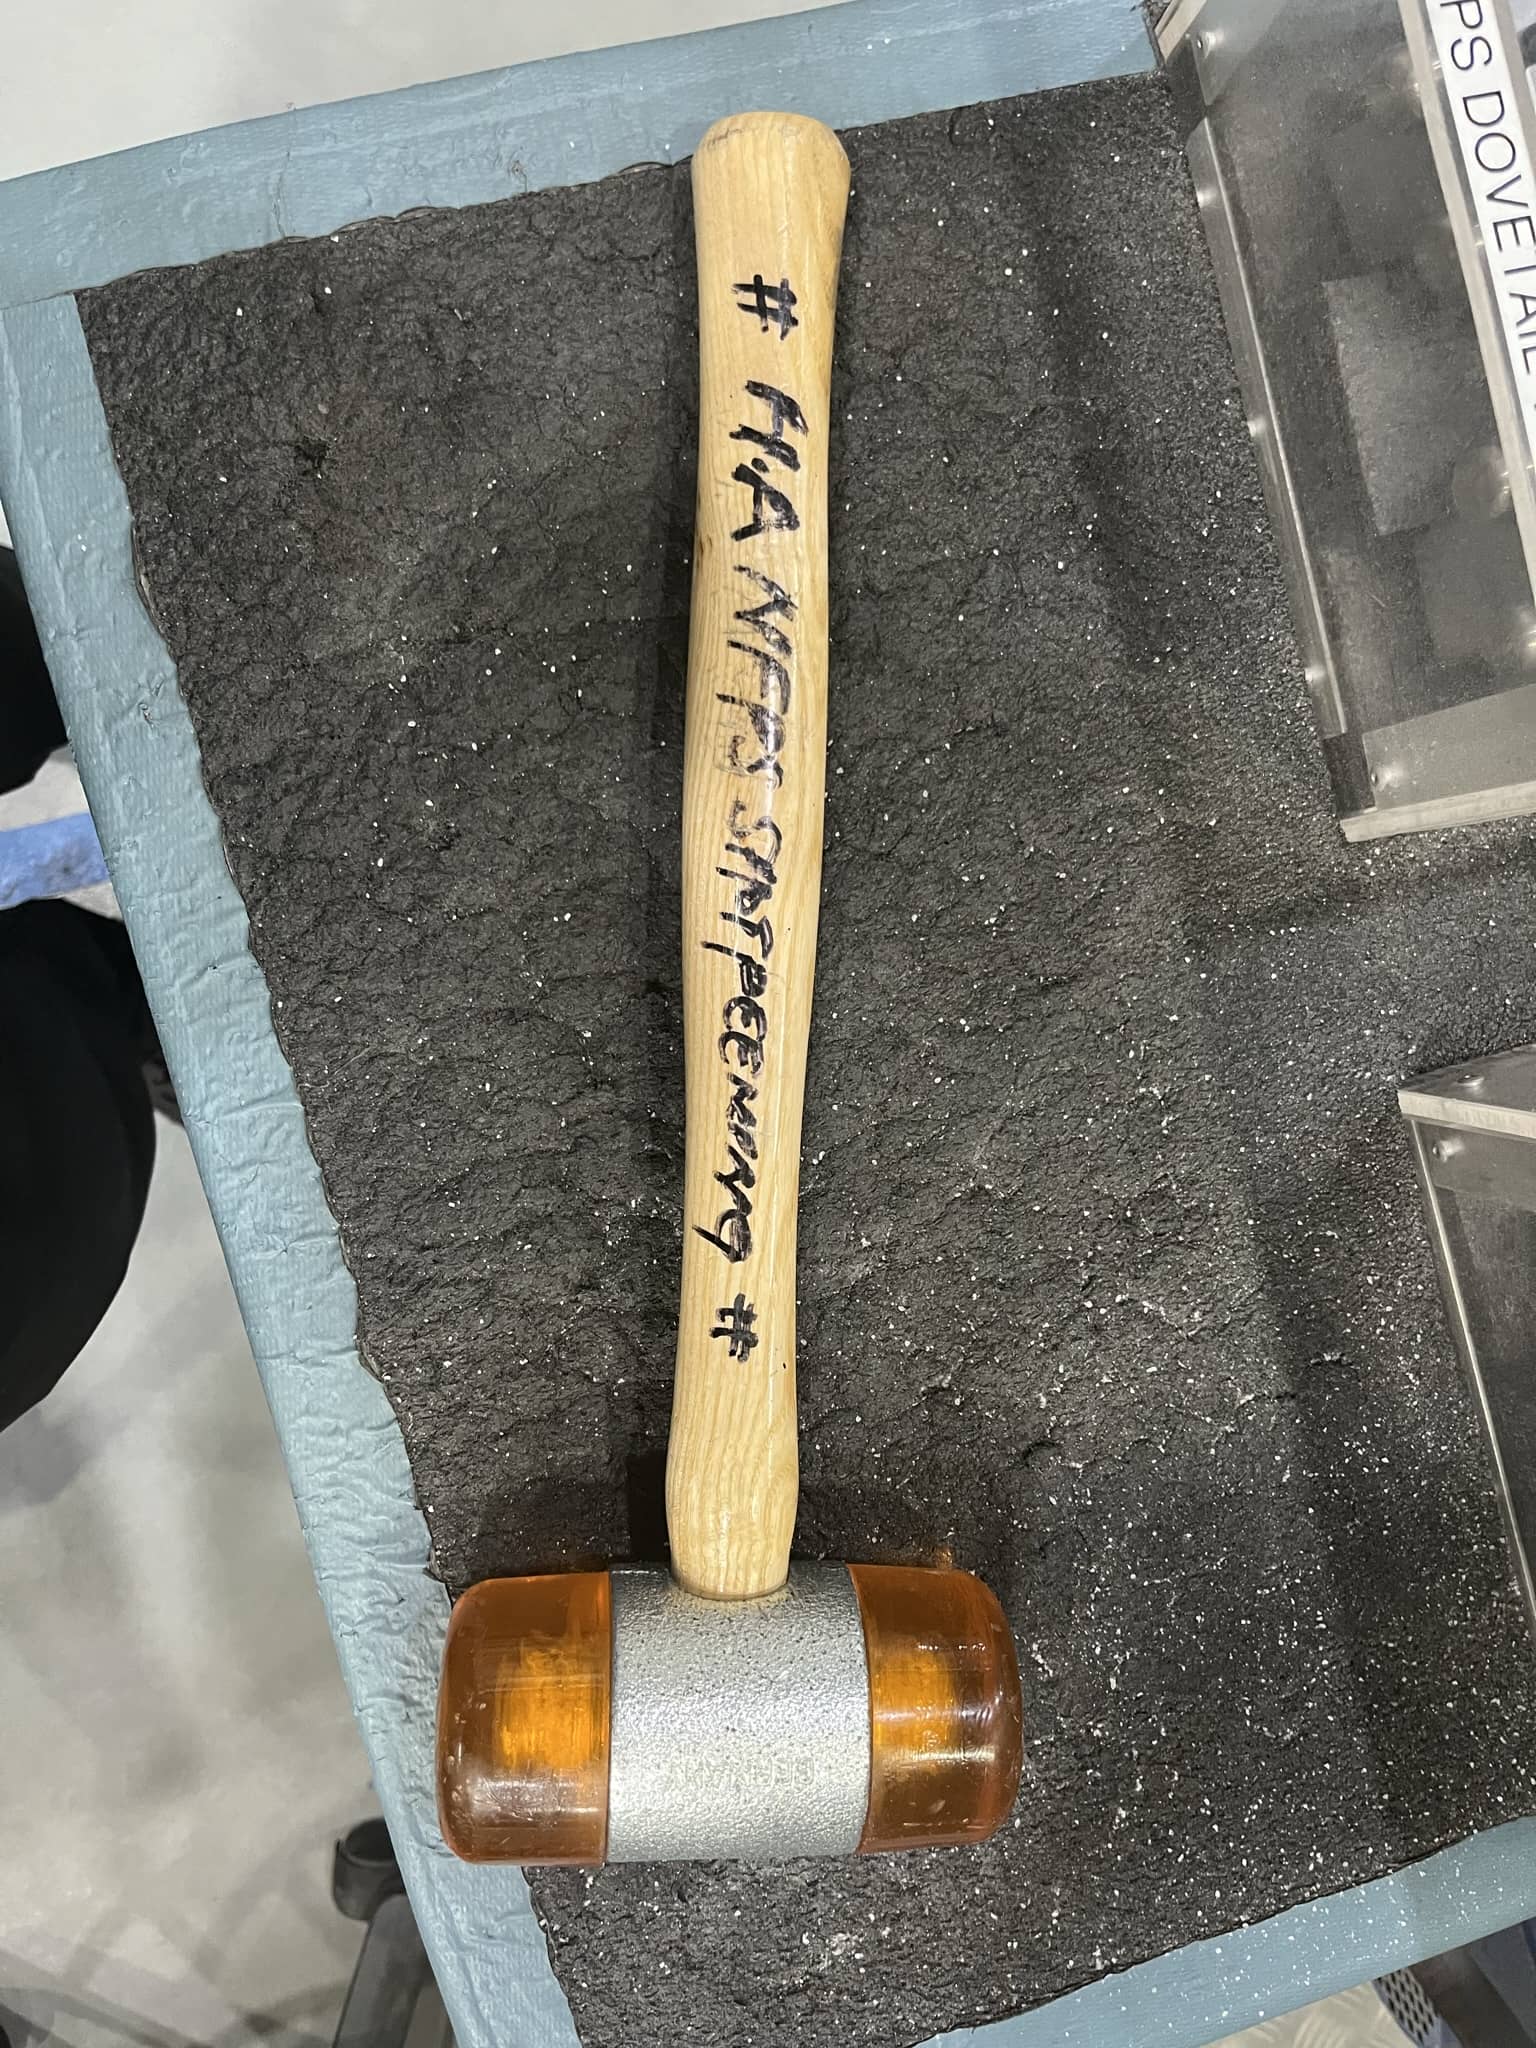 PS DOVETAIL
# H.A NFPS SHOTPEENING #